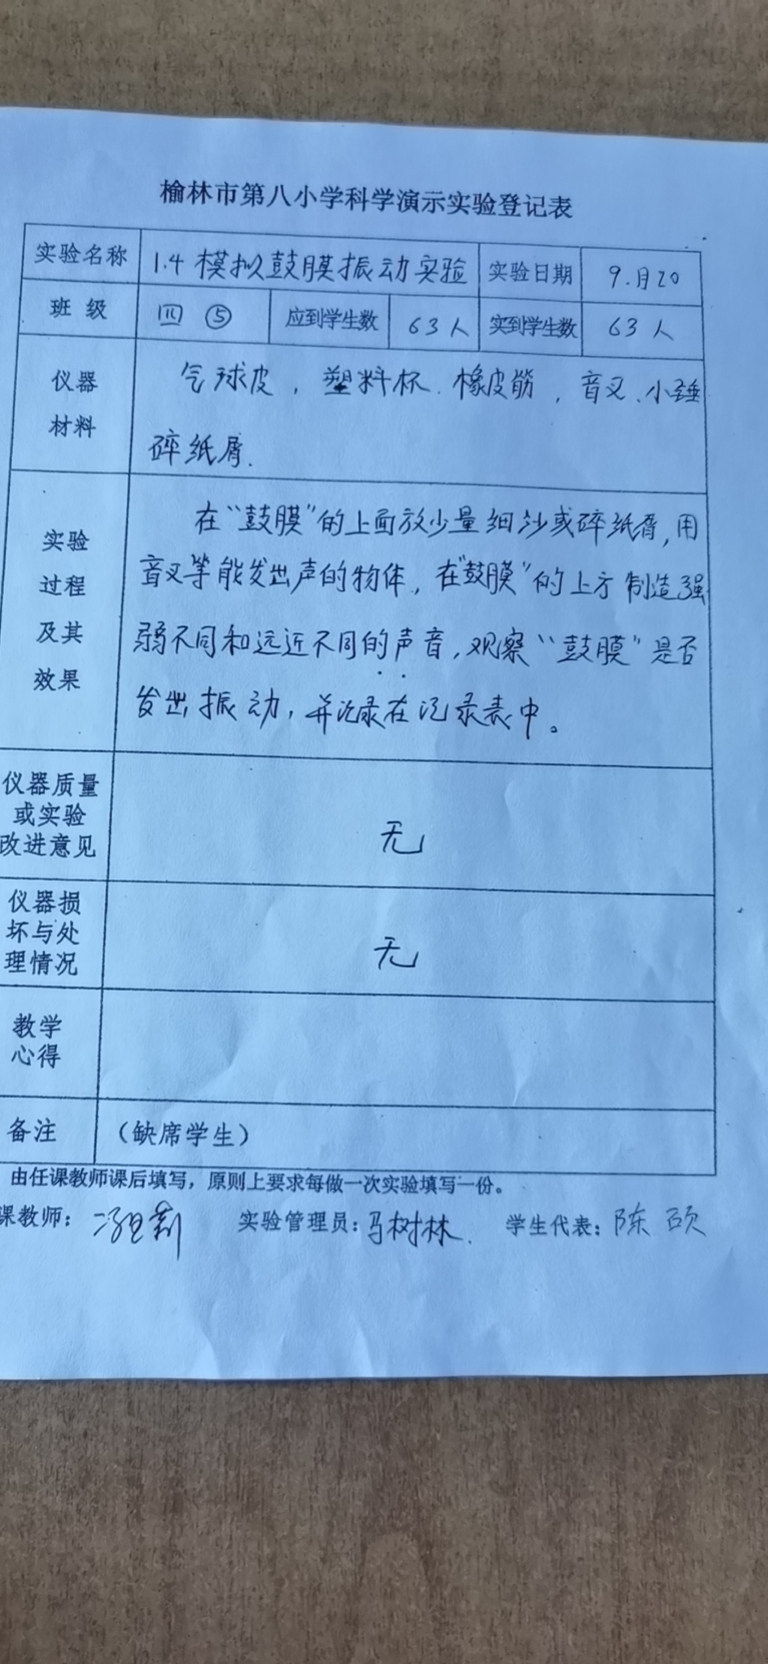 榆林市第八小学科学演示实验登记表
实验名称 1.4 模拟鼓膜振动实验 实验日期 9.月20
班 级 四 ⑤ 应到学生数 63人 实到学生数 63人
仪器
材料
气球皮，塑料杯、橡皮筋，音叉、小锤
碎纸屑.
实验
过程
及其
效果
在“鼓膜”的上面放少量细沙或碎纸屑,用
音叉等能发出声的物体，在“鼓膜”的上方制造强
弱不同和远近不同的声音,观察“鼓膜”是否
发出振动,并记录在记录表中。
仪器质量
或实验
改进意见
无
仪器损
坏与处
理情况
无
教学
心得
备注 （缺席学生）
由任课教师课后填写，原则上要求每做一次实验填写一份。
课教师： 实验管理员：马树林. 学生代表：陈硕